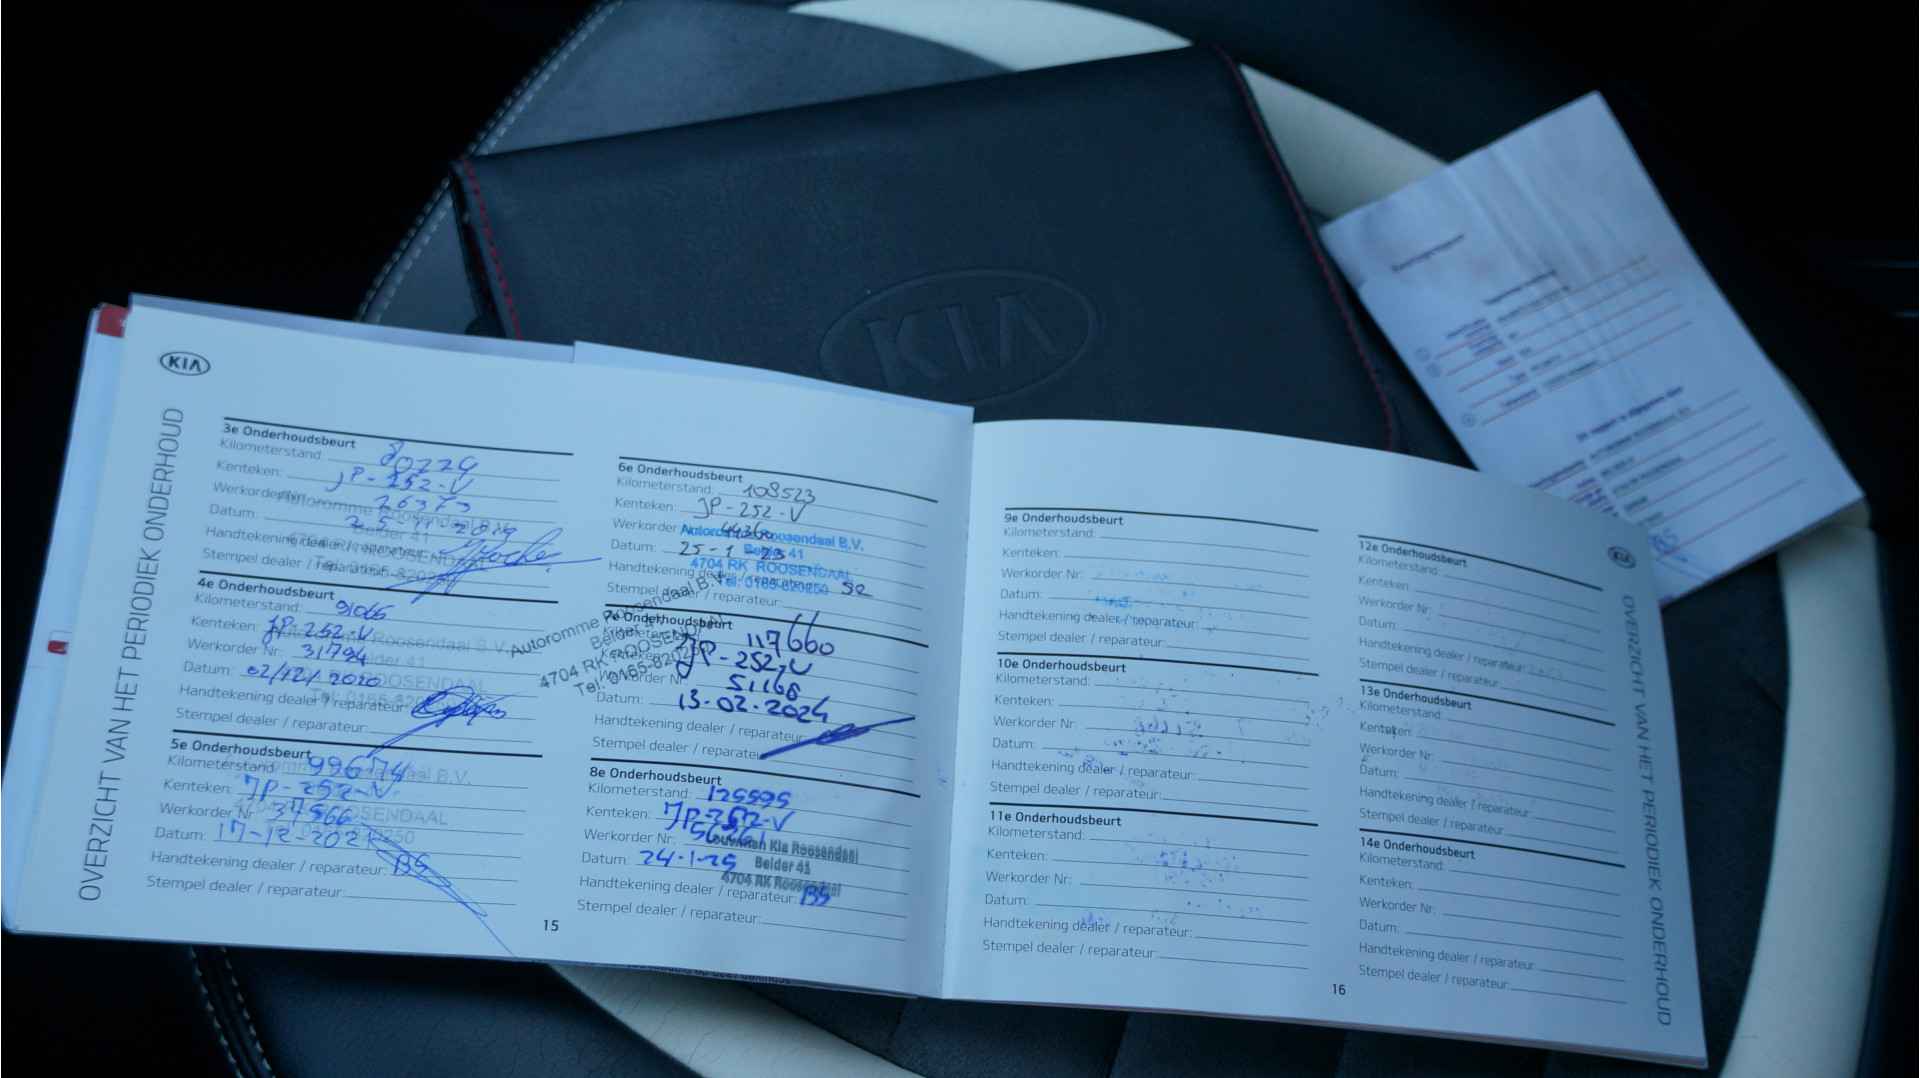 KIA
KIA
OVERZICHT VAN HET PERIODIEK ONDERHOUD
3e Onderhoudsbeurt
Kilometerstand: 80229
Kenteken: JP-252-V
Werkorder Nr: 26373
Datum:
Handtekening dealer / reparateur:
Stempel dealer / reparateur:
4e Onderhoudsbeurt
Kilometerstand: 91065
Kenteken: JP-252-V
Werkorder Nr: 31794
Datum: 02/12/2020
Handtekening dealer / reparateur:
Stempel dealer / reparateur:
5e Onderhoudsbeurt
Kilometerstand: 99674
Kenteken: JP-252-V
Werkorder Nr: 37566
Datum: 17-12-2021
Handtekening dealer / reparateur: BS
Stempel dealer / reparateur:
6e Onderhoudsbeurt
Kilometerstand: 108523
Kenteken: JP-252-V
Werkorder Nr: 44360
Datum: 25-1-23
Handtekening dealer / reparateur:
Stempel dealer / reparateur:
Roosendaal B.V.
Belder 41
4704 RK ROOSENDAAL
Tel: 0165-820250
7e Onderhoudsbeurt
Kilometerstand: 117660
Kenteken: JP-252-V
Werkorder Nr: 51166
Datum: 13-02-2024
Handtekening dealer / reparateur:
Stempel dealer / reparateur:
Autoromme Roosendaal B.V.
Belder 41
4704 RK ROOSENDAAL
Tel: 0165-820250
8e Onderhoudsbeurt
Kilometerstand: 125595
Kenteken: JP-252-V
Werkorder Nr:
Datum: 24-1-25
Handtekening dealer / reparateur: BS
Stempel dealer / reparateur:
Louwman Kia Roosendaal
Belder 41
4704 RK Roosendaal
15
9e Onderhoudsbeurt
Kilometerstand:
Kenteken:
Werkorder Nr:
Datum:
Handtekening dealer / reparateur:
Stempel dealer / reparateur:
10e Onderhoudsbeurt
Kilometerstand:
Kenteken:
Werkorder Nr:
Datum:
Handtekening dealer / reparateur:
Stempel dealer / reparateur:
11e Onderhoudsbeurt
Kilometerstand:
Kenteken:
Werkorder Nr:
Datum:
Handtekening dealer / reparateur:
Stempel dealer / reparateur:
12e Onderhoudsbeurt
Kilometerstand:
Kenteken:
Werkorder Nr:
Datum:
Handtekening dealer / reparateur:
Stempel dealer / reparateur:
13e Onderhoudsbeurt
Kilometerstand:
Kenteken:
Werkorder Nr:
Datum:
Handtekening dealer / reparateur:
Stempel dealer / reparateur:
14e Onderhoudsbeurt
Kilometerstand:
Kenteken:
Werkorder Nr:
Datum:
Handtekening dealer / reparateur:
Stempel dealer / reparateur:
16
KIA
OVERZICHT VAN HET PERIODIEK ONDERHOUD